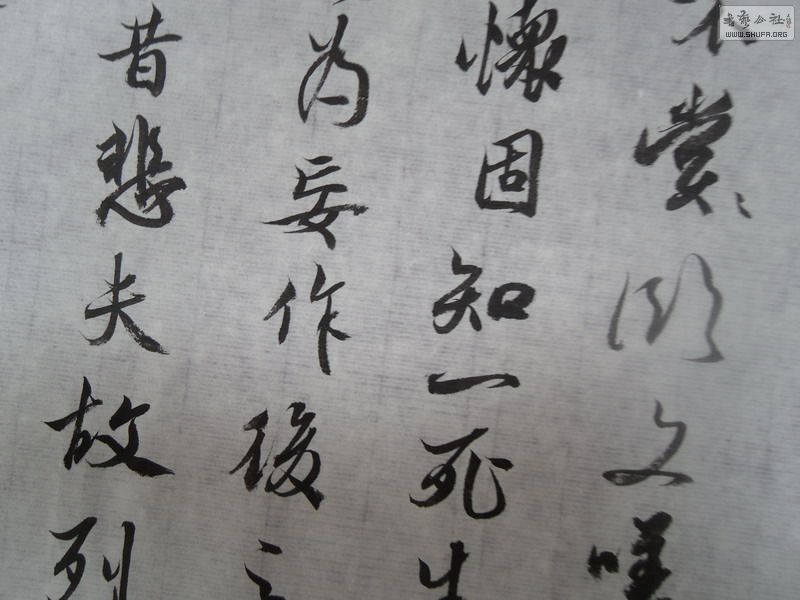 嘗臨文嗟
懷固知一死生
为妄作後之
昔悲夫故列
书艺公社
WWW.SHUFA.ORG